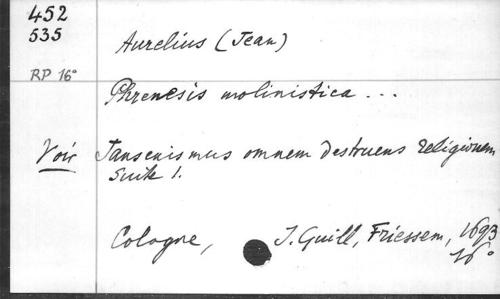 452
535
RP 16°
Aurelius (Jean)
Phrenesis molinistica ...
Voir Jansenismus omnem destruens religionem
Suite 1.
Cologne, J. Guill, Friessem, 1693
16°